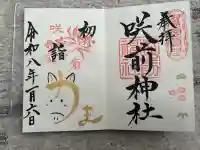 奉拝
咲前神社
初詣
うま
令和八年一月六日